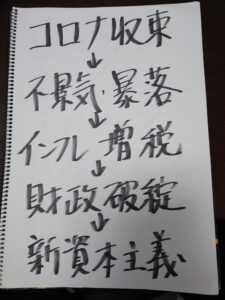 コロナ収束
↓
不景気・暴落
↓
インフレ増税
↓
財政破綻
↓
新資本主義